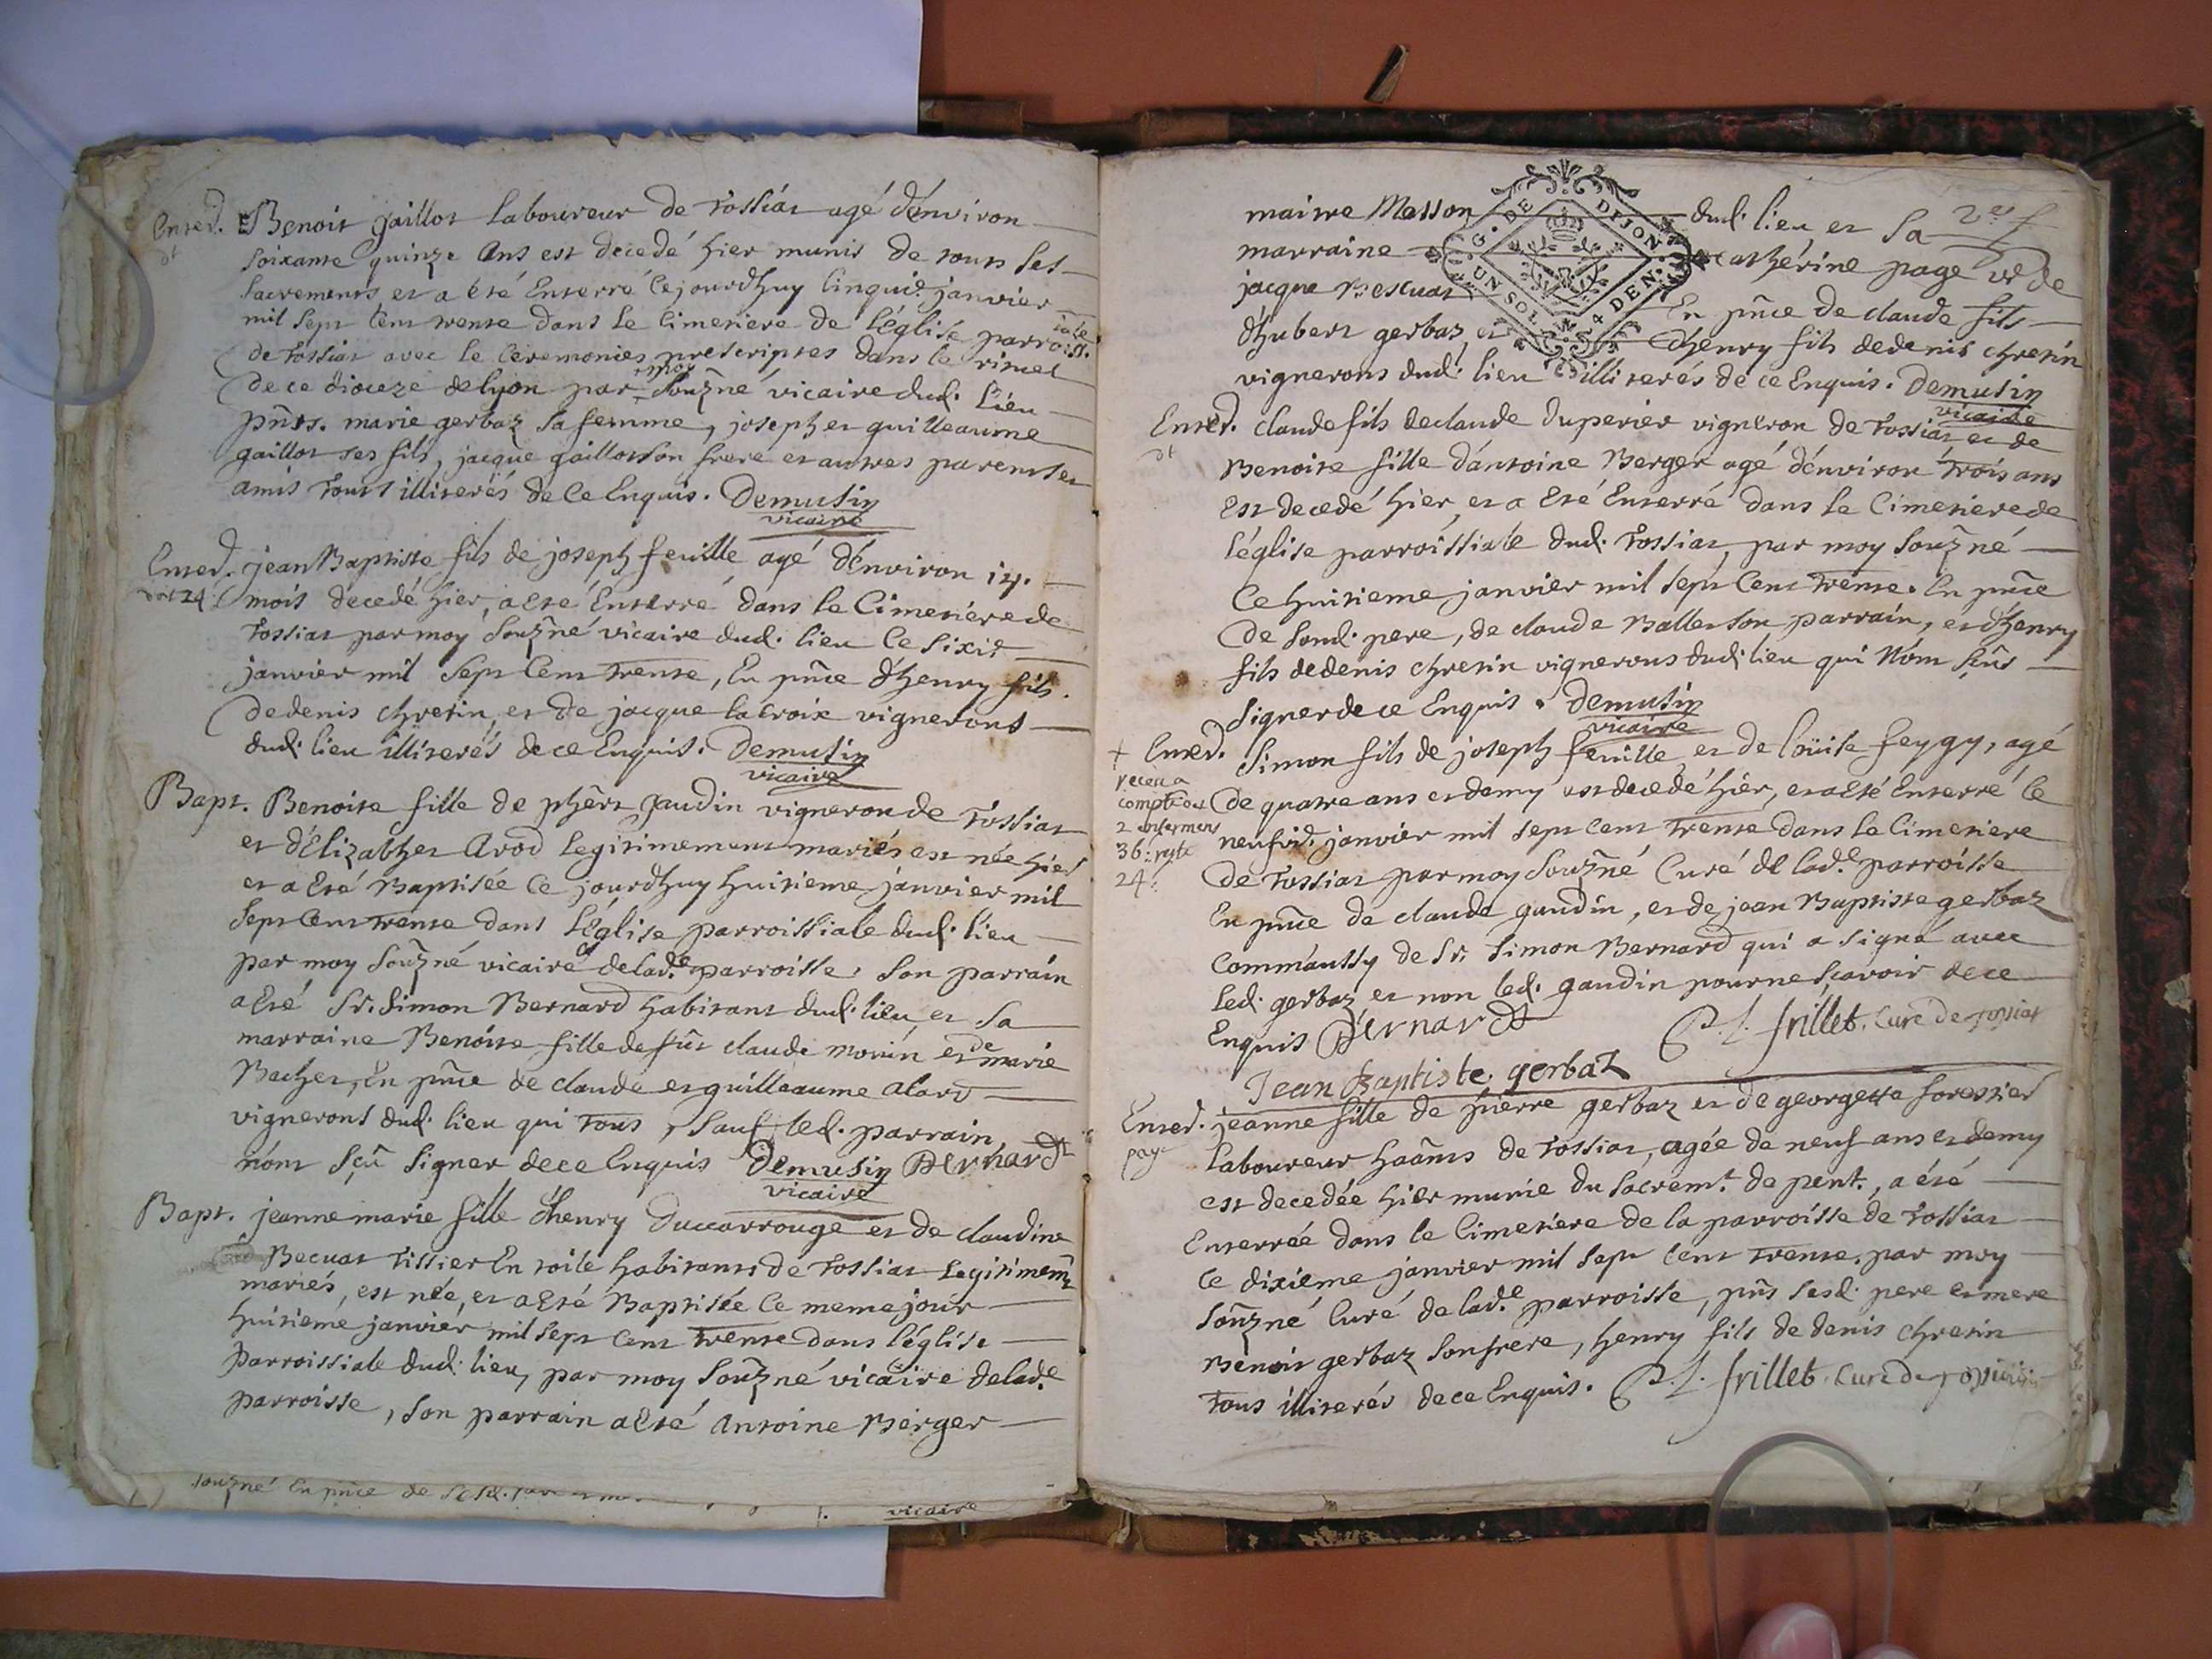 Enterd. Benoit gaillot laboureur de Tossiat agé d'environ
dt
soixante quinze ans est decedé hier munis de touts ses
sacrements et a été Enterré ce jourd'huy cinquie. janvier
mil sept cent trente dans le cimetiere de l'église parroissiale
de Tossiat avec le ceremonies prescriptes dans le rituel
de ce dioceze de lyon par moy souz̃né vicaire dud. lieu
pñts. marie gerbaz sa femme, joseph et guilleaume
gaillot ses fils, jacque gaillot son frere et autres parents et
amis touts illiterés de ce Enquis. Demusin
vicaire
Enterd. jean Baptiste fils de joseph feuille agé d'environ 14.
24 mois decedé hier, a eté Enterré dans le Cimetiere de
Tossiat par moy souz̃né vicaire dud. lieu le sixie
janvier mil sept cent trente, En pñce d'henry fils
de denis chretin, et de jacque lacroix vignerons
dud. lieu illiterés de ce Enquis. Demusin
vicaire
Bapt. Benoite fille de phẽrt gaudin vigneron de Tossiat
et d'Elizabhet Arod legitimement mariés est née hier
et a Eté Baptisée ce jourd'huy huitieme janvier mil
sept cent trente dans l'Eglise parroissiale dud. lieu
par moy souz̃né vicaire de lad.e parroisse, son parrain
a Eté sr. Simon Bernard habitant dud. lieu, et sa
marraine Benoite fille de fût claude morin et de marie
Bachet, En pñce de claude et guilleaume alard
vignerons dud. lieu qui tous, sauf led. parrain,
n'ont sçû signer de ce Enquis Demusin Bernard
vicaire
Bapt. jeanne marie fille d'henry Duccarrouge et de claudine
Becuat Tissier En toile habitants de Tossiat legitimem̃t
mariés, est née, et a Eté Baptisée le meme jour
huitieme janvier mil sept cent trente dans l'église
parroissiale dud. lieu, par moy souz̃né vicaire de lad.e
parroisse, son parrain a Eté Antoine Berger
souz̃né En pñce de
vicaire
2e f
maitre Masson dud. lieu et sa
marraine catherine page ve de
jacque Bescuat En pñce de claude fils
d'hubert gerbaz, et d'henry fils de denis chretin
vignerons dud. lieu illiterés de ce Enquis. Demusin
vicaire
G. DE DIJON
UN SOL 4 DEN.
Enterd. claude fils de claude Duperier vigneron de Tossiat et de
dt
Benoite fille d'antoine Berger agé d'environ trois ans
est decedé hier, et a Eté Enterré dans le Cimetiere de
l'église parroissiale dud. Tossiat, par moy souz̃né
Ce huitieme janvier mil sept cent trente. En pñce
de sond. pere, de claude Ballet son parrain, et d'henry
fils de denis chretin vignerons dud. lieu qui n'ont sçûs
signer de ce Enquis. Demusin
vicaire
+ Enterd. Simon fils de joseph feuille et de loüise feygy, agé
receu a
de quatre ans et demy est decedé hier, et a Eté Enterré le
2 enfermens
neufvie. janvier mil sept cent trente dans le Cimetiere
36:
24:
de Tossiat par moy souz̃né Curé de lad.e parroisse
En pñce de claude gaudin, et de jean Baptiste gerbaz
Comm'aussy de sr. Simon Bernard qui a signé avec
led. gerbaz et non led. gaudin pour ne sçavoir de ce
Enquis Bernard frillet. Curé de Tossiat
Jean Baptiste gerbaz
Enterd. jeanne fille de pierre gerbaz et de georgette forestier
payé
laboureur haãnts de Tossiat, agée de neuf ans et demy
est decedée hier munie du sacrem.t de penit., a été
Enterrée dans le Cimetiere de la parroisse de Tossiat
le dixieme janvier mil sept cent trente. par moy
souz̃né Curé de lad.e parroisse, pñts sesd. pere et mere
Benoit gerbaz son frere, henry fils de denis chretin
tous illiterés de ce Enquis. frillet. Curé de Tossiat